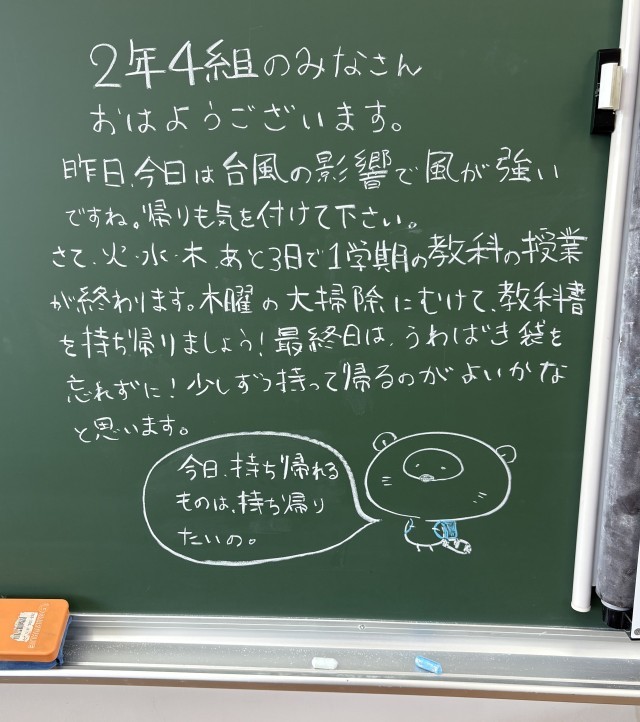 2年4組のみなさん
おはようございます。
昨日、今日は台風の影響で風が強い
ですね。帰りも気を付けて下さい。
さて、火・水・木、あと3日で1学期の教科の授業
が終わります。木曜の大掃除にむけて、教科書
を持ち帰りましょう！最終日は、うわばき袋を
忘れずに！少しずつ持って帰るのがよいかな
と思います。
今日、持ち帰れる
ものは、持ち帰り
たいの。